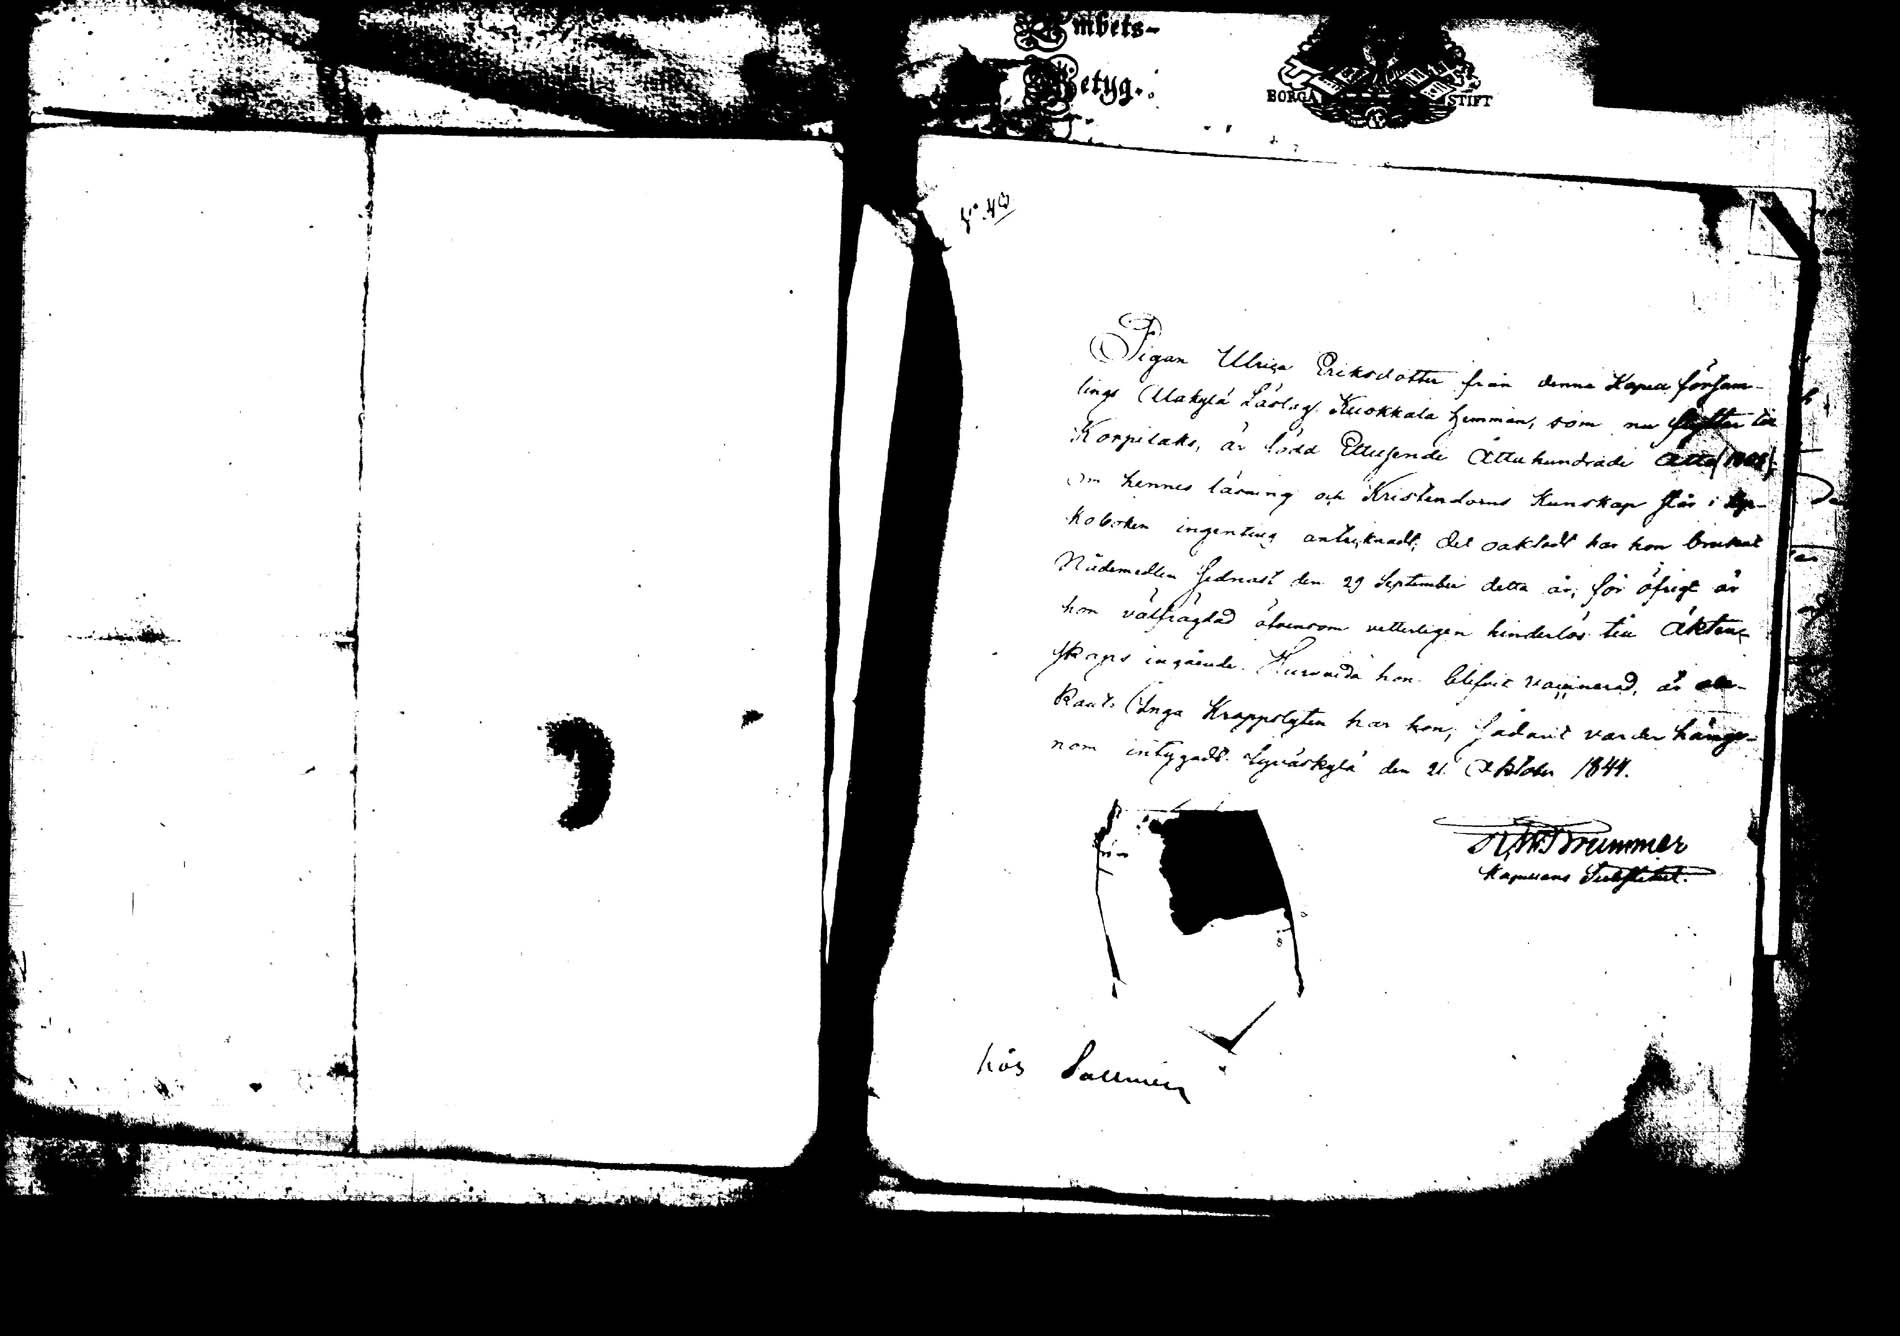 Embets-
Betyg.
BORGÅ STIFT
Pigan Ulrica Eriksdotter från denna Kapell försam-
lings Alakylä Läslag Kuokkala hemman, som nu flyttar till
Korpilaks, är född Ettusende Åttahundrade Åtta (1808);
om hennes läsning och Kristendoms Kunskap står i Kyr-
koboken ingenting antecknadt; det oaktadt har hon brukat
Nådemedlen sednast den 29 September detta år; för öfrigt är
hon välfrägdad äfvensom vetterligen hinderlös till äkten-
skaps ingående. Huruvida hon blifvit vaccinerad, är obe-
kant. Inga Kroppslyten har hon, sådant varder härige-
nom intygadt. Jyväskylä den 21 Oktober 1844.
Brummer
Kapellans
hos